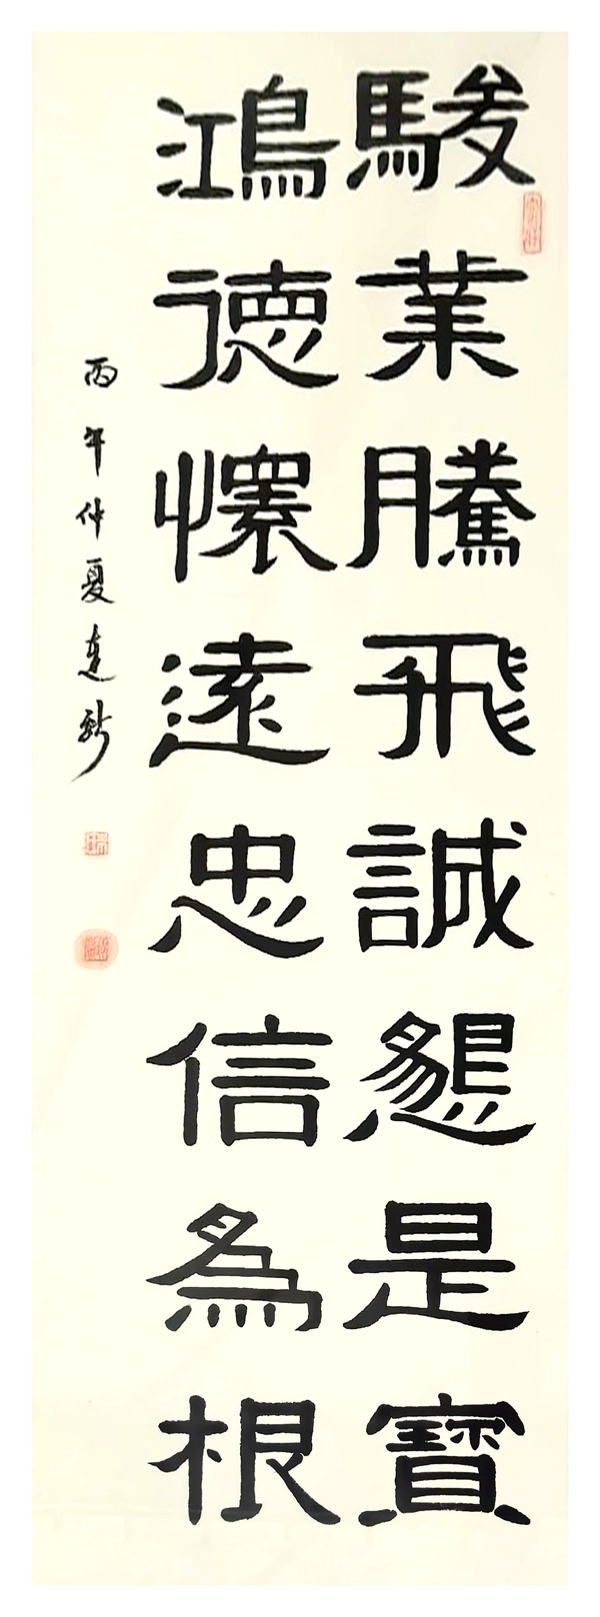 駿業騰飛誠懇是寶
鴻德懷遠忠信為根
丙午仲夏達新